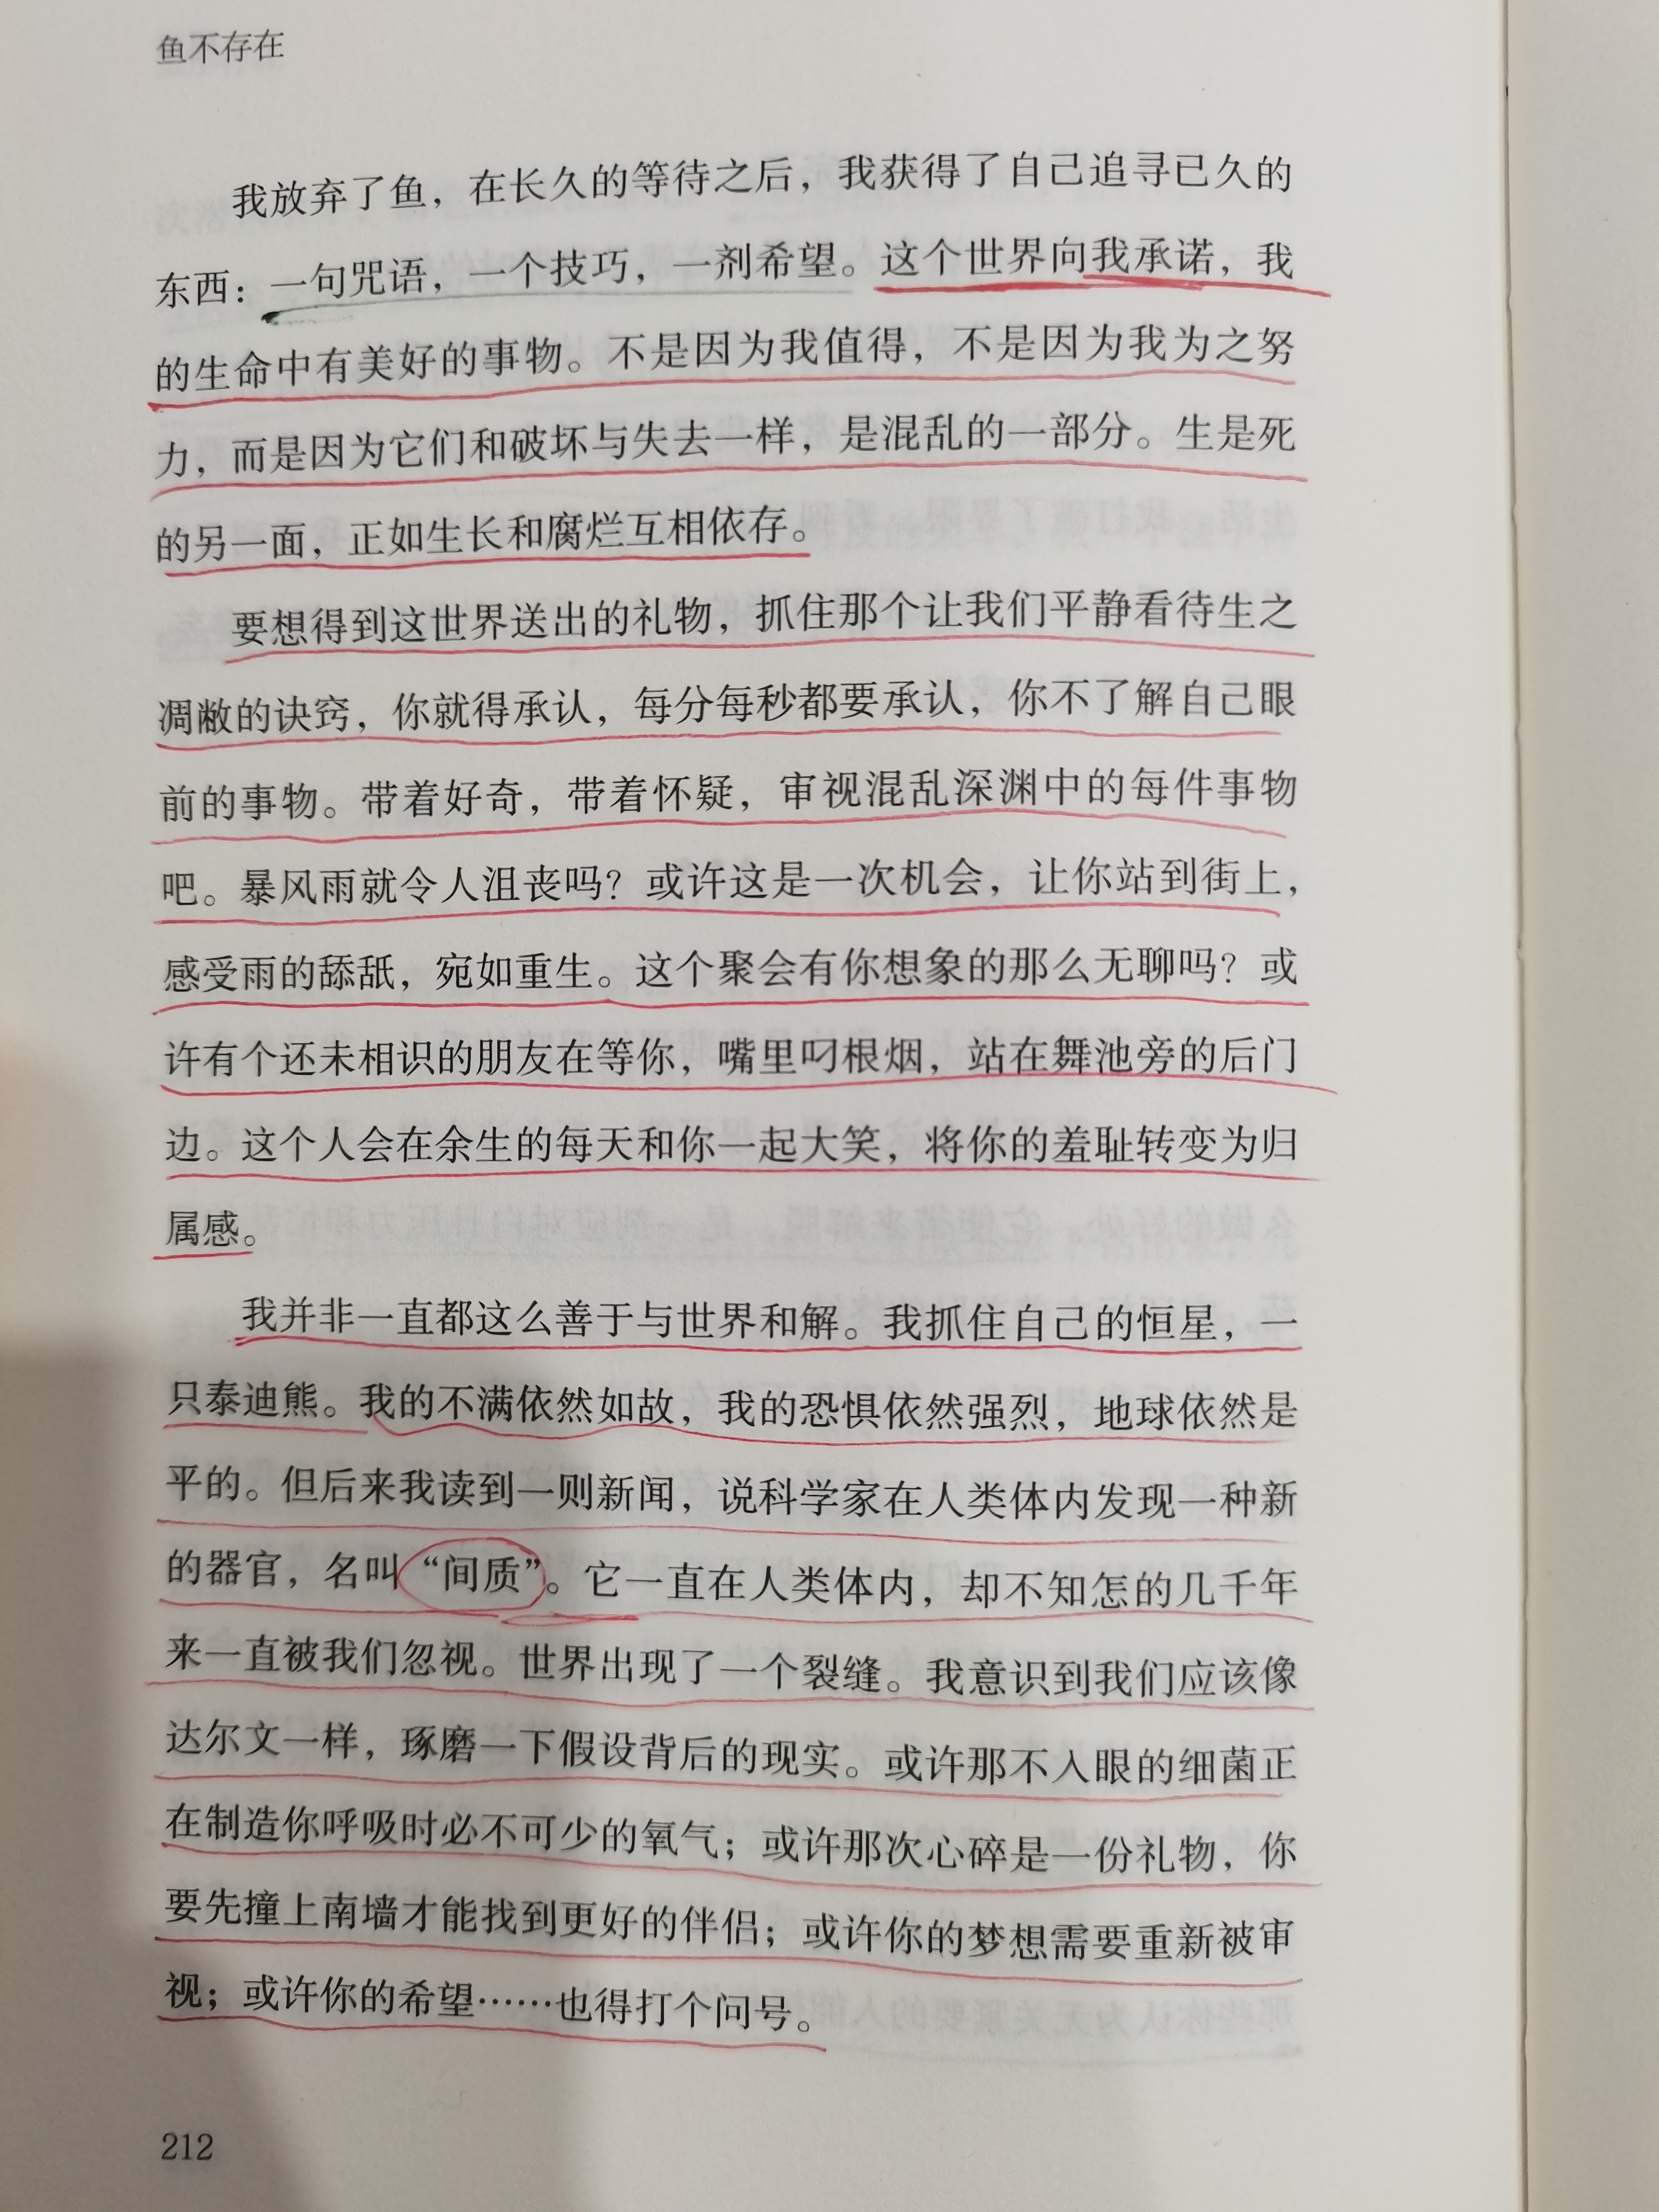 鱼不存在
我放弃了鱼，在长久的等待之后，我获得了自己追寻已久的
东西：一句咒语，一个技巧，一剂希望。这个世界向我承诺，我
的生命中有美好的事物。不是因为我值得，不是因为我为之努
力，而是因为它们和破坏与失去一样，是混乱的一部分。生是死
的另一面，正如生长和腐烂互相依存。
要想得到这世界送出的礼物，抓住那个让我们平静看待生之
凋敝的诀窍，你就得承认，每分每秒都要承认，你不了解自己眼
前的事物。带着好奇，带着怀疑，审视混乱深渊中的每件事物
吧。暴风雨就令人沮丧吗？或许这是一次机会，让你站到街上，
感受雨的舔舐，宛如重生。这个聚会有你想象的那么无聊吗？或
许有个还未相识的朋友在等你，嘴里叼根烟，站在舞池旁的后门
边。这个人会在余生的每天和你一起大笑，将你的羞耻转变为归
属感。
我并非一直都这么善于与世界和解。我抓住自己的恒星，一
只泰迪熊。我的不满依然如故，我的恐惧依然强烈，地球依然是
平的。但后来我读到一则新闻，说科学家在人类体内发现一种新
的器官，名叫“间质”。它一直在人类体内，却不知怎的几千年
来一直被我们忽视。世界出现了一个裂缝。我意识到我们应该像
达尔文一样，琢磨一下假设背后的现实。或许那不入眼的细菌正
在制造你呼吸时必不可少的氧气；或许那次心碎是一份礼物，你
要先撞上南墙才能找到更好的伴侣；或许你的梦想需要重新被审
视；或许你的希望……也得打个问号。
212